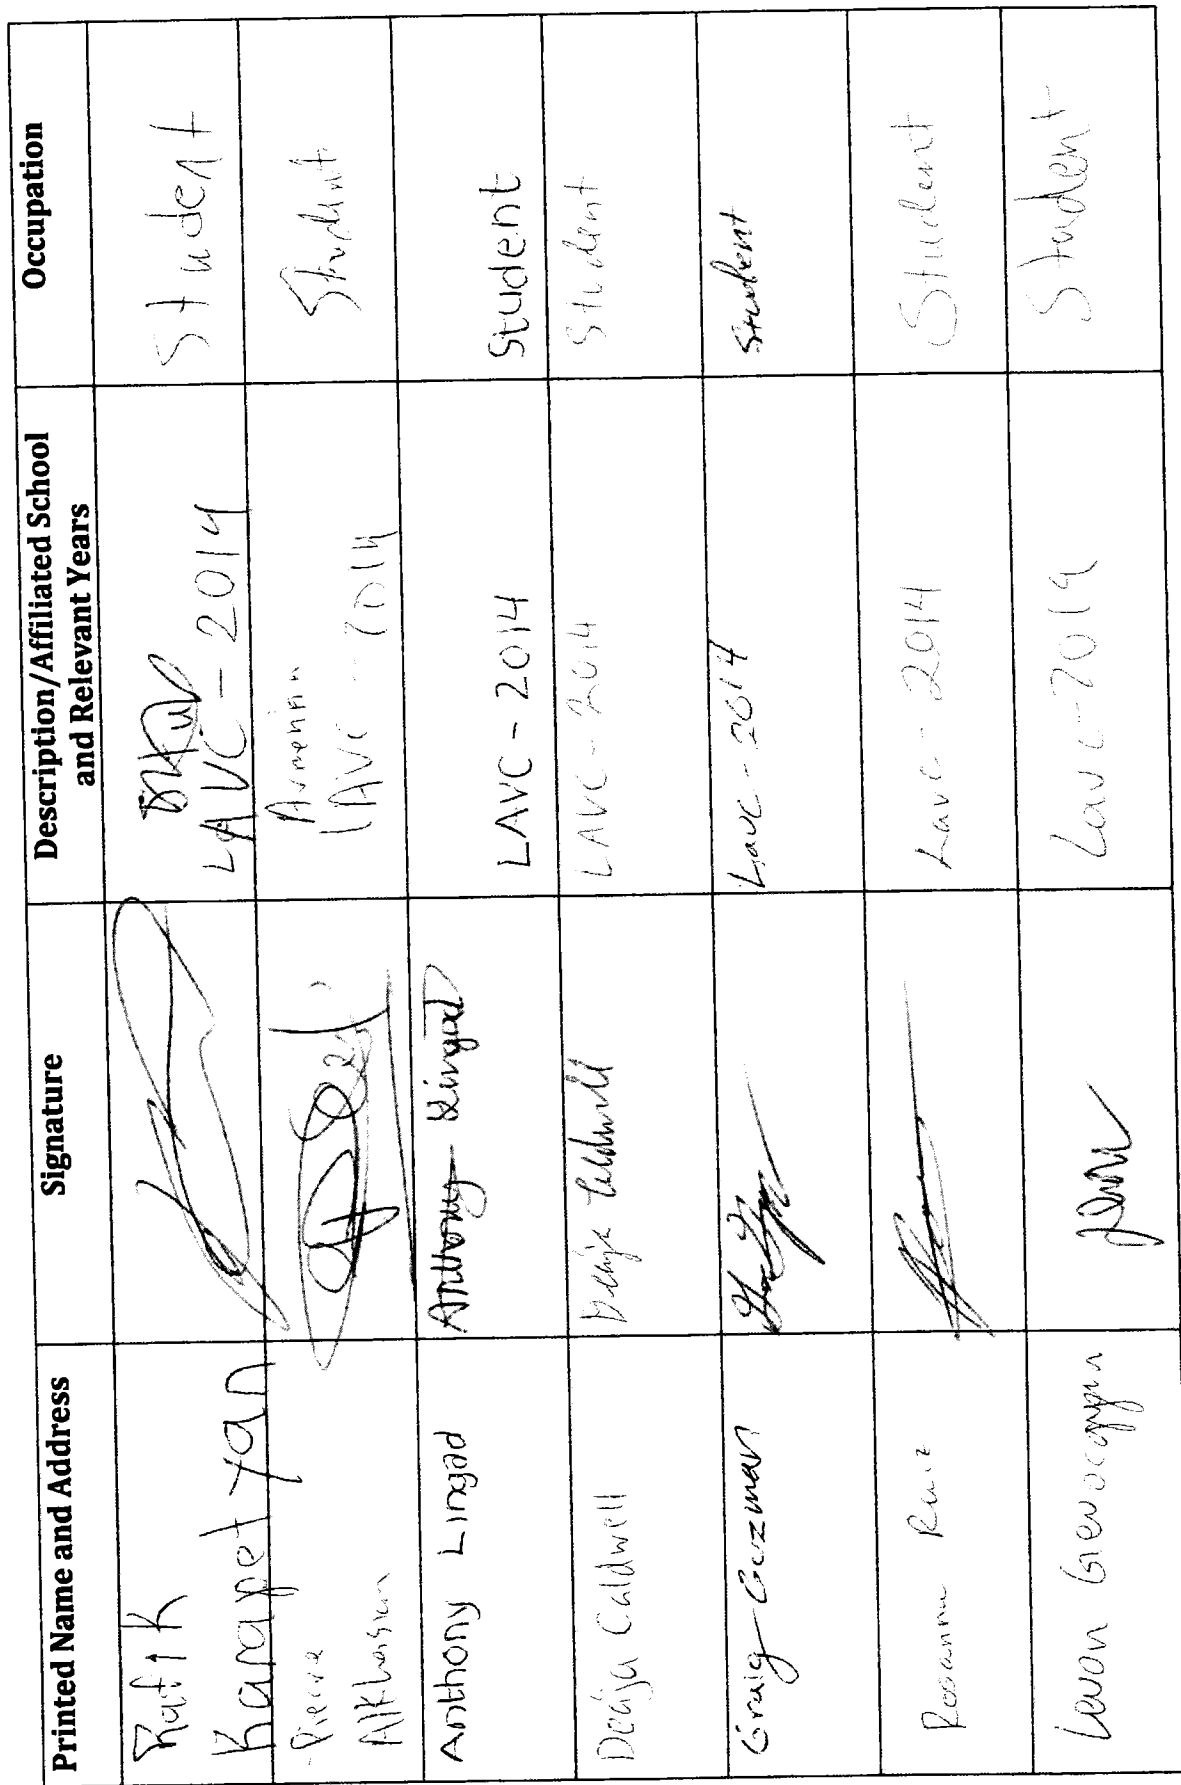 Printed Name and Address Signature Description/Affiliated School Occupation
and Relevant Years
Rafik
Karapetyan LAVC - 2014 Student
Pierre Armenian
Alkhasian LAVC - 2014 Student
Anthony Lingad Anthony Lingad LAVC - 2014 Student
Deája Caldwell Deája Caldwell LAVC - 2014 Student
Craig Guzman Lavc - 2014 Student
Rosanna Ruiz Lavc - 2014 Student
Levon Lavc - 2014 Student